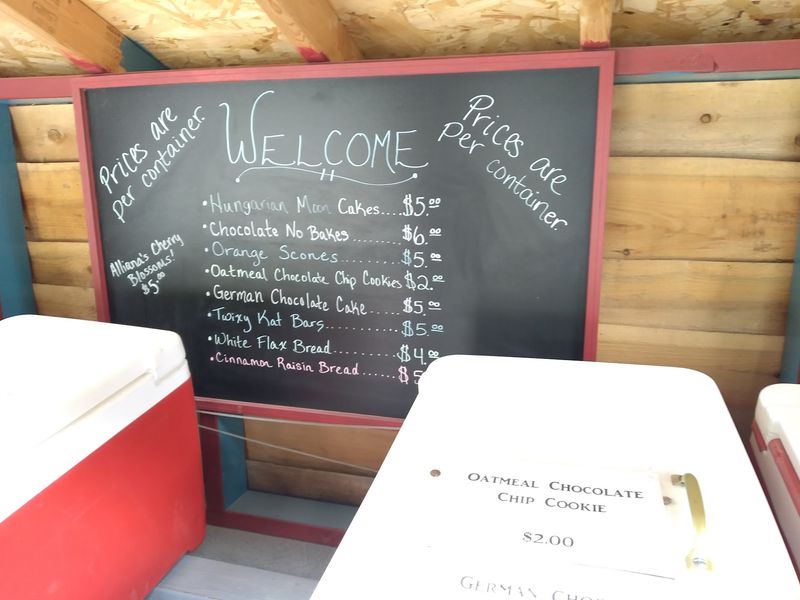 Prices are
per container.
WELCOME
Prices are
per container.
• Hungarian Moon Cakes....$5.00
• Chocolate No Bakes........$6.00
• Orange Scones............$5.00
• Oatmeal Chocolate Chip Cookies $2.00
• German Chocolate Cake....$5.00
• Twixy Kat Bars...........$5.00
• White Flax Bread.........$4.00
• Cinnamon Raisin Bread......$5
Alliana's Cherry
Blossoms!
$5.00
OATMEAL CHOCOLATE
CHIP COOKIE
$2.00
GERMAN